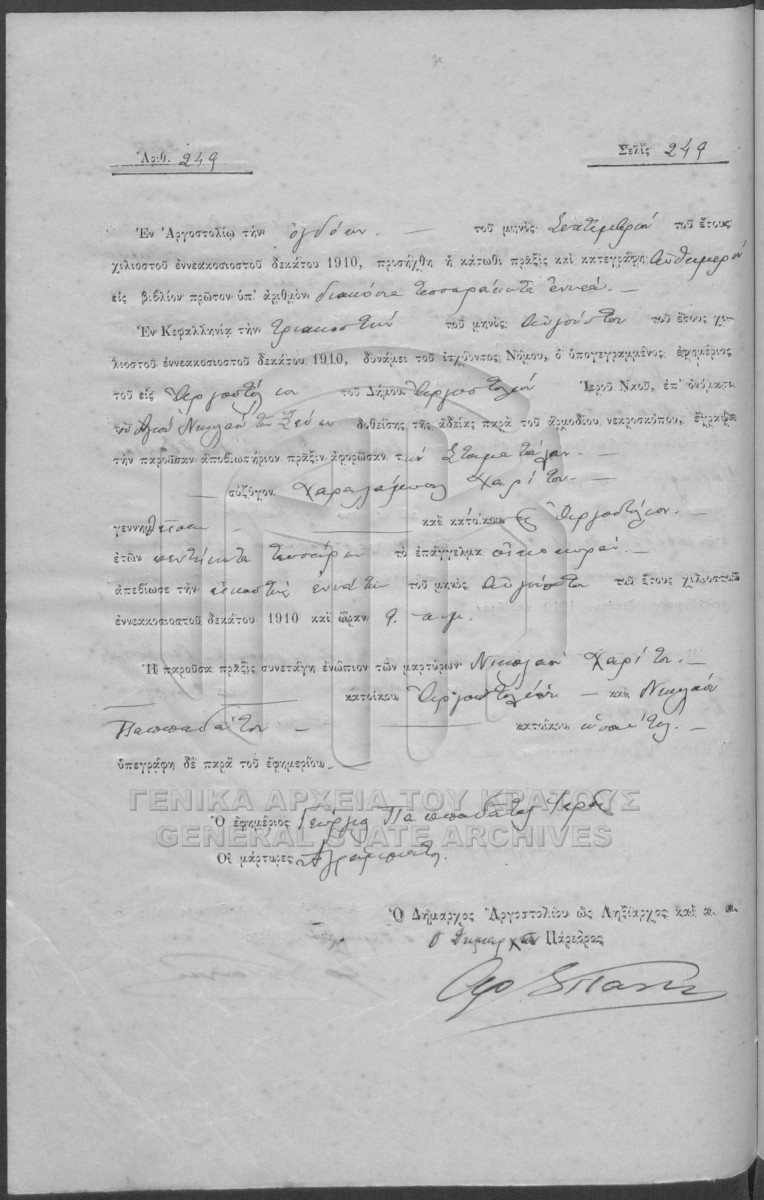 Ἀριθ. 249
Σελὶς 249
Ἐν Ἀργοστολίῳ τὴν ὀγδόην — τοῦ μηνὸς Σεπτεμβρίου τοῦ ἔτους
χιλιοστοῦ ἐννεακοσιοστοῦ δεκάτου 1910, προσήχθη ἡ κάτωθι πρᾶξις καὶ κατεγράφη Αὐθημερὸν
εἰς βιβλίον πρῶτον ὑπ' ἀριθμὸν διακόσια τεσσαράκοντα ἐννέα. —
Ἐν Κεφαλληνίᾳ τὴν τριακοστὴν τοῦ μηνὸς Αὐγούστου τοῦ ἔτους χι-
λιοστοῦ ἐννεακοσιοστοῦ δεκάτου 1910, δυνάμει τοῦ ἰσχύοντος Νόμου, ὁ ὑπογεγραμμένος ἐφημέριος
τοῦ εἰς Ἀργοστόλιον τοῦ Δήμου Ἀργοστολίου Ἱεροῦ Ναοῦ, ἐπ' ὀνόματι
τοῦ Ἁγίου Νικολάου τῶν δοθείσης τῆς ἀδείας παρὰ τοῦ ἁρμοδίου νεκροσκόπου, ἔγραψα
τὴν παροῦσαν ἀποβιωτήριον πρᾶξιν ἀφορῶσαν τὴν Σταματούλαν. —
— σύζυγον Χαραλάμπους Χαρίτου. —
γεννηθεῖσαν — καὶ κάτοικον εἰς Ἀργοστόλιον. —
ἐτῶν πεντήκοντα τεσσάρων τὸ ἐπάγγελμα οἰκοκυράν. —
ἀπεβίωσε τὴν εἰκοστὴν ἐννάτην τοῦ μηνὸς Αὐγούστου τοῦ ἔτους χιλιοστοῦ
ἐννεακοσιοστοῦ δεκάτου 1910 καὶ ὥραν 9 π.μ.
Ἡ παροῦσα πρᾶξις συνετάγη ἐνώπιον τῶν μαρτύρων Νικολάου Χαρίτου. —
κατοίκου Ἀργοστολίου — καὶ Νικολάου
Παππαδάτου — κατοίκου
ὑπεγράφη δὲ παρὰ τοῦ ἐφημερίου. —
ΓΕΝΙΚΑ ΑΡΧΕΙΑ ΤΟΥ ΚΡΑΤΟΥΣ
Ὁ ἐφημέριος Γεώργιος Παππαδάτος Ἱερεὺς
GENERAL STATE ARCHIVES
Οἱ μάρτυρες Ἀγράμματοι.
Ὁ Δήμαρχος Ἀργοστολίου ὡς Ληξίαρχος καὶ α. α.
ὁ Δημαρχικὸς Πάρεδρος